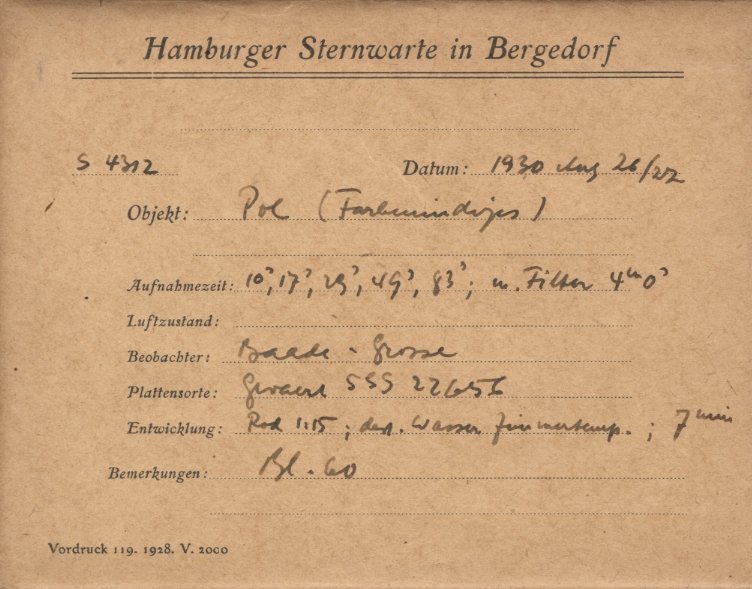 Hamburger Sternwarte in Bergedorf
S 4312 Datum: 1930 Aug 26/27
Objekt: Pol (Farbenindizes)
Aufnahmezeit: 10ˢ, 17ˢ, 29ˢ, 49ˢ, 83ˢ; m. Filter 4ᵐ0ˢ
Luftzustand:
Beobachter: Baade - Grosse
Plattensorte: Gevaert SSS 22656
Entwicklung: Rod 1:15; dest. Wasser Zimmertemp.; 7 min
Bemerkungen: Bl. 60
Vordruck 119. 1928. V. 2000